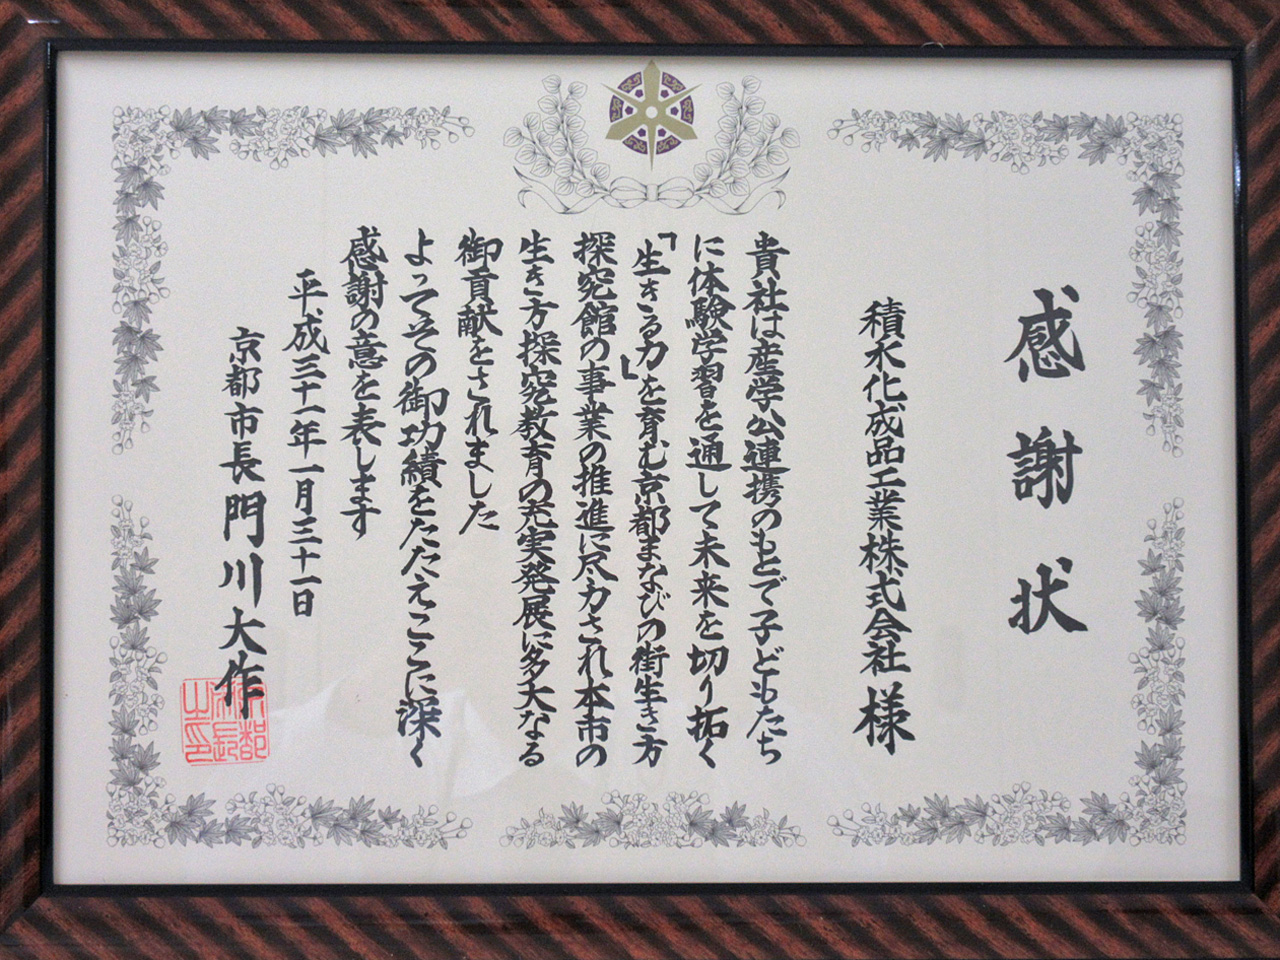 感謝状
積水化成品工業株式会社様
貴社は産学公連携のもとで子どもたち
に体験学習を通して未来を切り拓く
「生きる力」を育む京都まなびの街生き方
探究館の事業の推進に尽力され本市の
生き方探究教育の充実発展に多大なる
御貢献をされました
よってその御功績をたたえここに深く
感謝の意を表します
平成三十一年一月三十一日
京都市長門川大作
京都市長之印